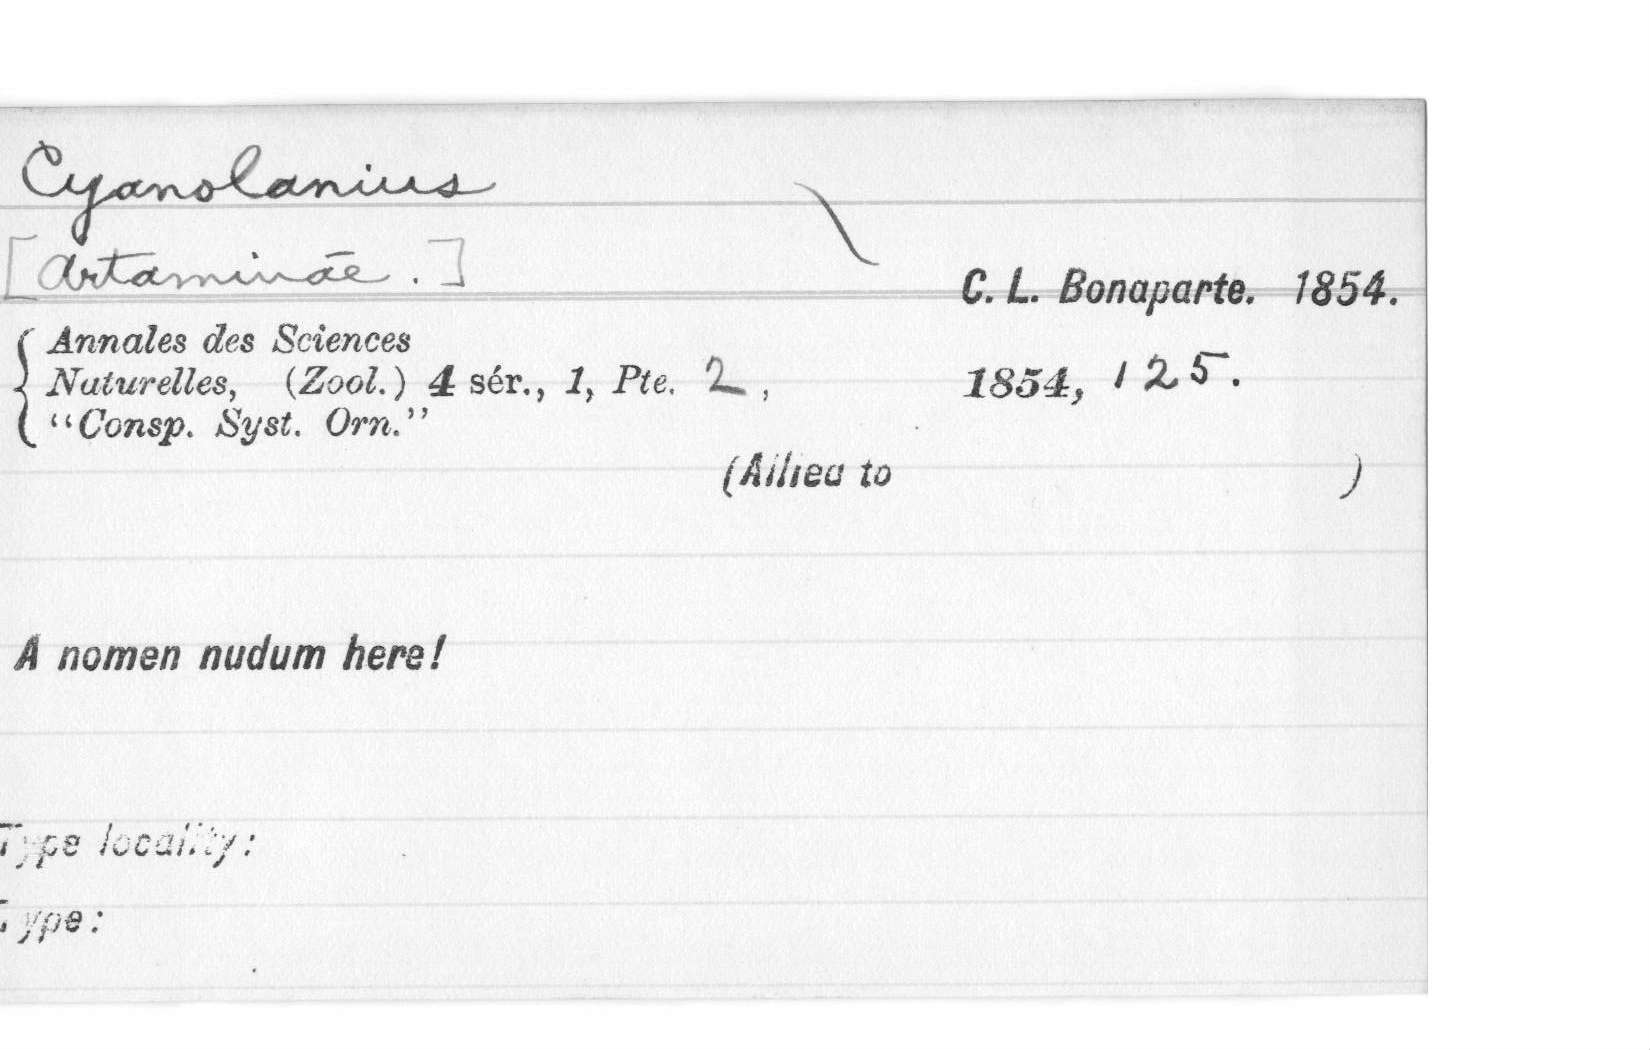 Cyanolanius
[Artaminae.]
C. L. Bonaparte. 1854.
Annales des Sciences
Naturelles, (Zool.) 4 sér., 1, Pte. 2, 1854, 125.
"Consp. Syst. Orn."
(Allied to )
A nomen nudum here!
Type locality:
Type: